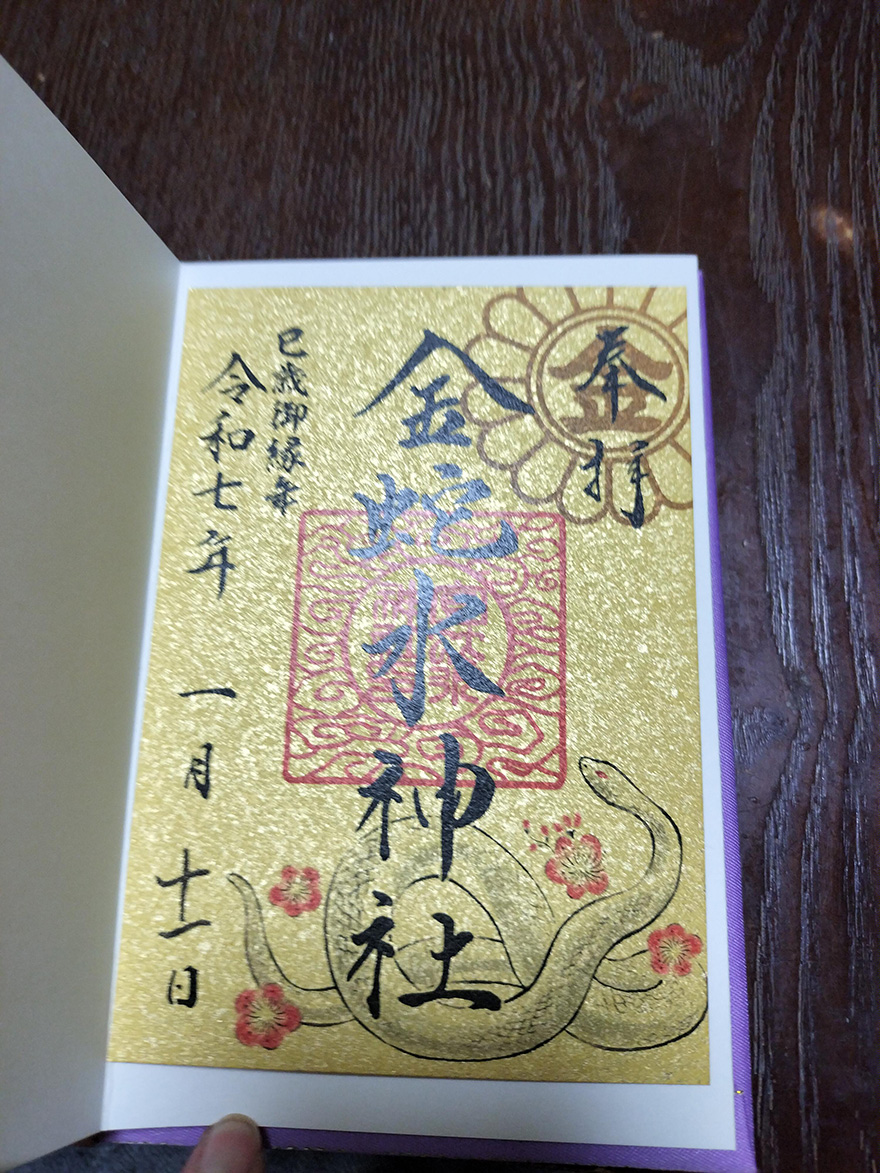 奉拝
金
金蛇水神社
巳歳御縁年
令和七年 一月 十一日